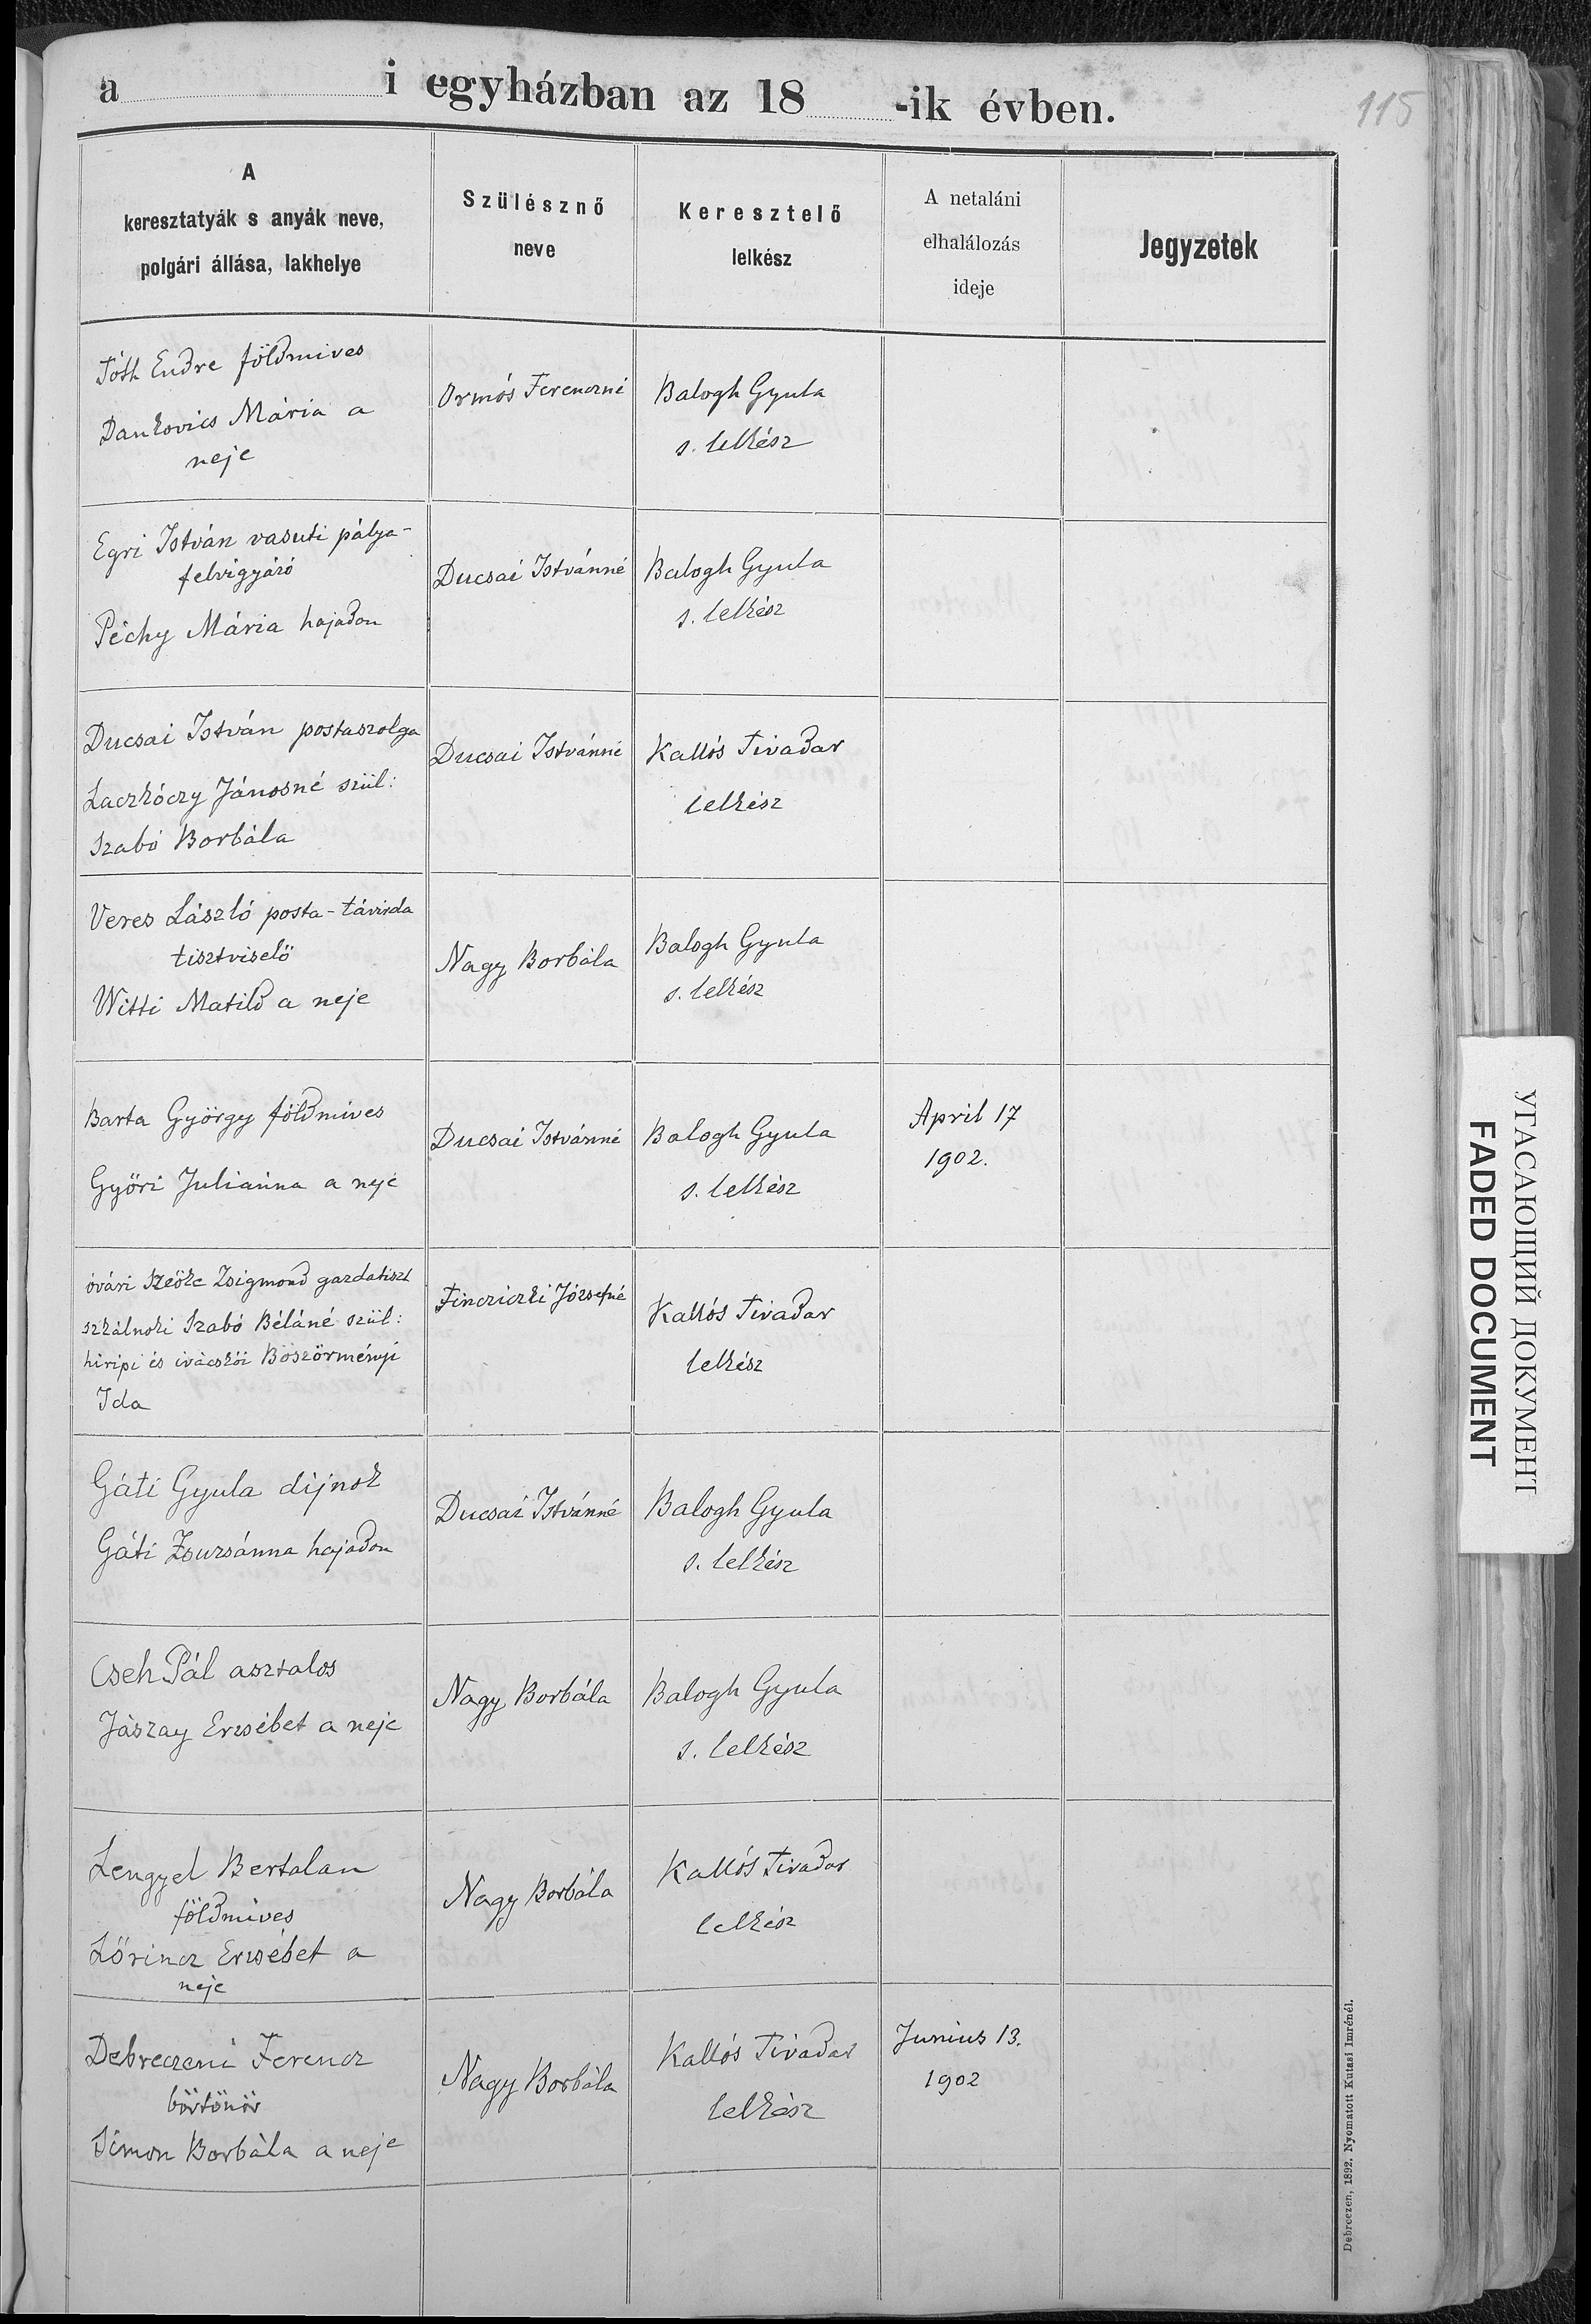 a i egyházban az 18 -ik évben.
115
A
keresztatyák s anyák neve,
polgári állása, lakhelye
Szülésznő
neve
Keresztelő
lelkész
A netaláni
elhalálozás
ideje
Jegyzetek
Tóth Endre földmives
Dankovics Mária a
neje
Ormós Ferenczné
Balogh Gyula
s. lelkész
Egri István vasuti pálya-
felvigyázó
Péchy Mária hajadon
Ducsai Istvánné
Balogh Gyula
s. lelkész
Ducsai István postaszolga
Laczkóczy Jánosné szül:
Szabó Borbála
Ducsai Istvánné
Kallós Tivadar
lelkész
Veres László posta-távirda
tisztviselő
Witti Matild a neje
Nagy Borbála
Balogh Gyula
s. lelkész
Barta György földmives
Győri Julianna a neje
Ducsai Istvánné
Balogh Gyula
s. lelkész
April 17
1902.
óvári Szőke Zsigmond gazdatiszt
szkálnoki Szabó Béláné szül:
hiripi és ivácskói Böszörményi
Ida
Fincziczki Józsefné
Kallós Tivadar
lelkész
Gáti Gyula dijnok
Gáti Zsuzsánna hajadon
Ducsai Istvánné
Balogh Gyula
s. lelkész
Cseh Pál asztalos
Jászay Erzsébet a neje
Nagy Borbála
Balogh Gyula
s. lelkész
Lengyel Bertalan
földmives
Lőrincz Erzsébet a
neje
Nagy Borbála
Kallós Tivadar
lelkész
Debreczeni Ferencz
börtönör
Simon Borbála a neje
Nagy Borbála
Kallós Tivadar
lelkész
Junius 13.
1902
Debreczen, 1892. Nyomatott Kutasi Imrénél.
УГАСАЮЩИЙ ДОКУМЕНТ
FADED DOCUMENT